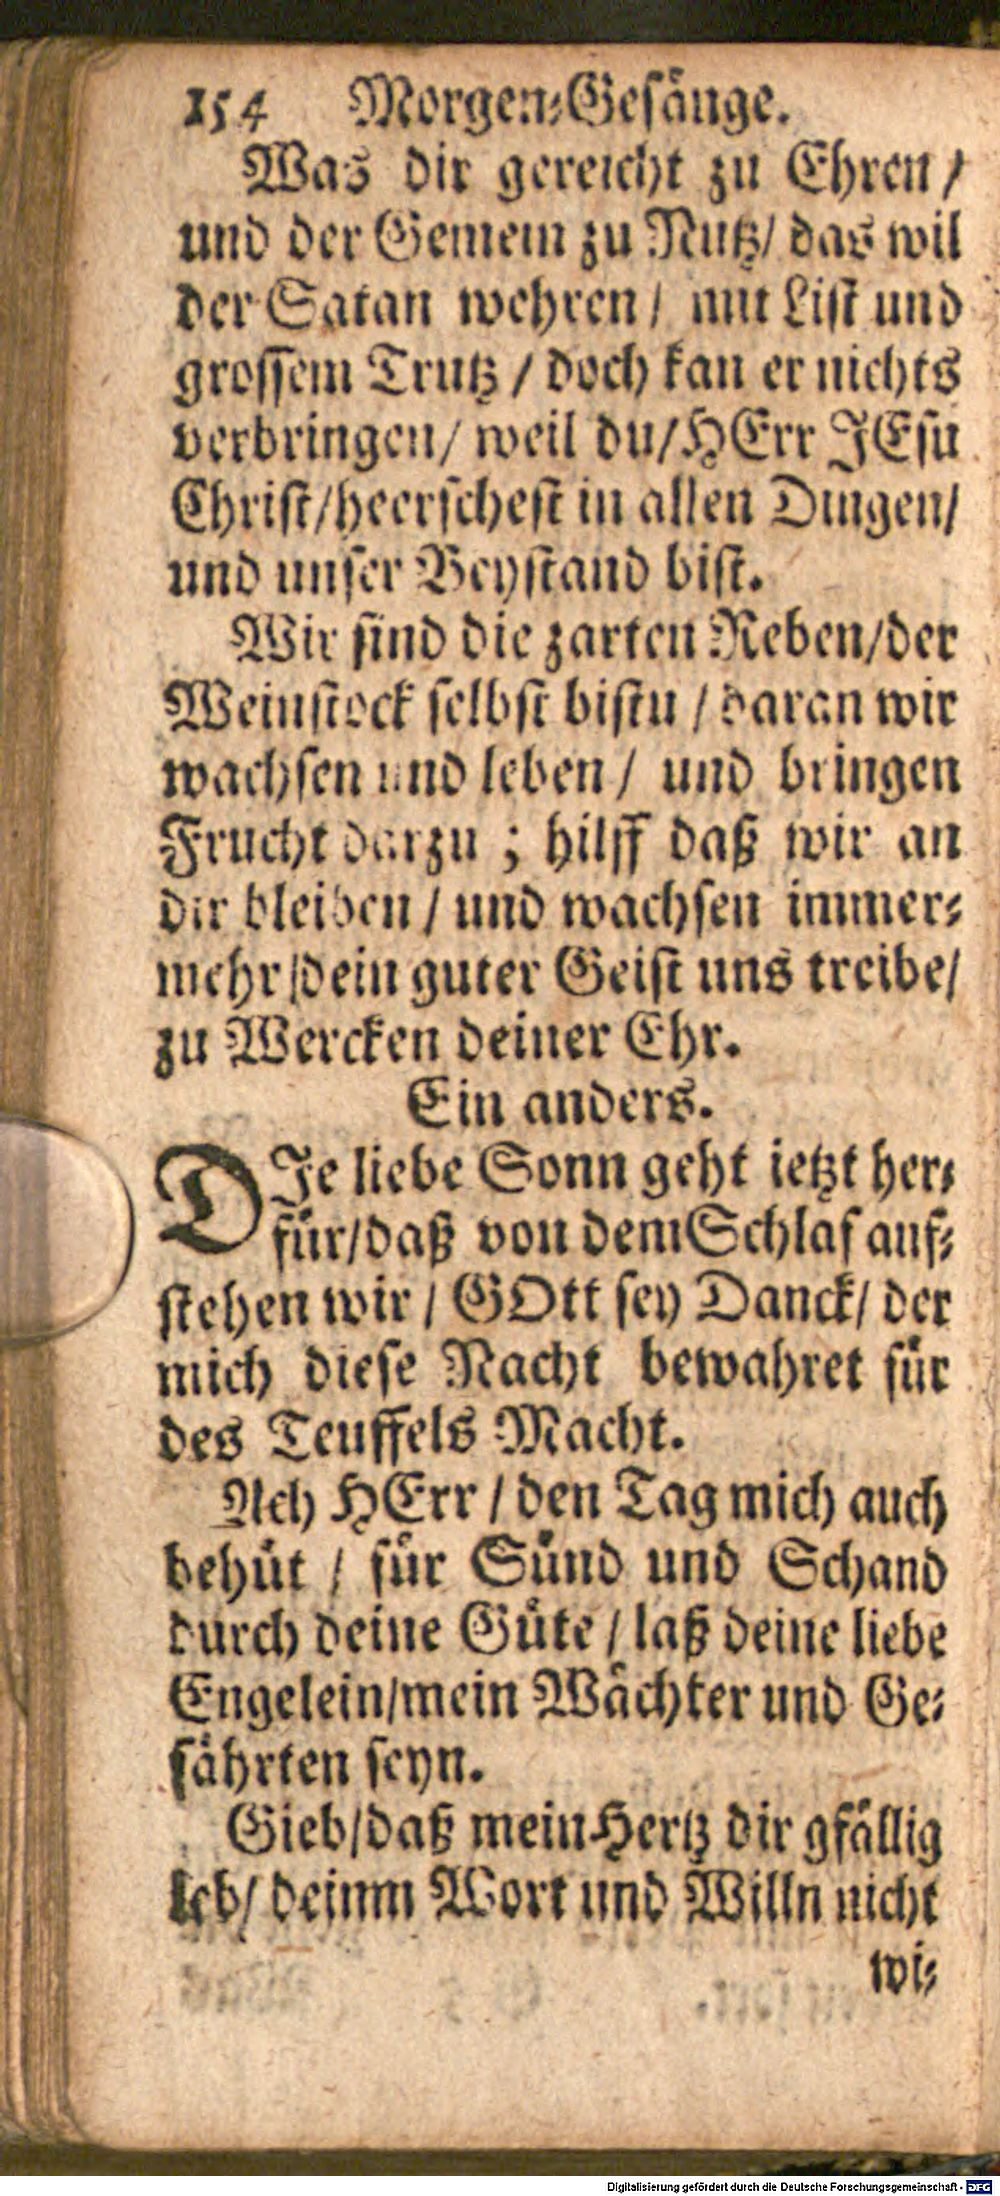 154 Morgen-Gesänge.
Was dir gereicht zu Ehren /
und der Gemein zu Nutz / das wil
der Satan wehren / mit List und
grossem Trutz / doch kan er nichts
verbringen / weil du / HErr JEsu
Christ / heerschest in allen Dingen /
und unser Beystand bist.
Wir sind die zarten Reben / der
Weinstock selbst bistu / daran wir
wachsen und leben / und bringen
Frucht darzu ; hilff daß wir an
dir bleiben / und wachsen immer-
mehr / dein guter Geist uns treibe /
zu Wercken deiner Ehr.
Ein anders.
DIe liebe Sonn geht ietzt her-
für / daß von dem Schlaf auf-
stehen wir / GOtt sey Danck / der
mich diese Nacht bewahret für
des Teuffels Macht.
Ach HErr / den Tag mich auch
behüt / für Sünd und Schand
durch deine Güte / laß deine liebe
Engelein / mein Wächter und Ge-
fährten seyn.
Gieb / daß mein Hertz dir gfällig
leb / deinm Wort und Willn nicht
wi-
Digitalisierung gefördert durch die Deutsche Forschungsgemeinschaft - DFG